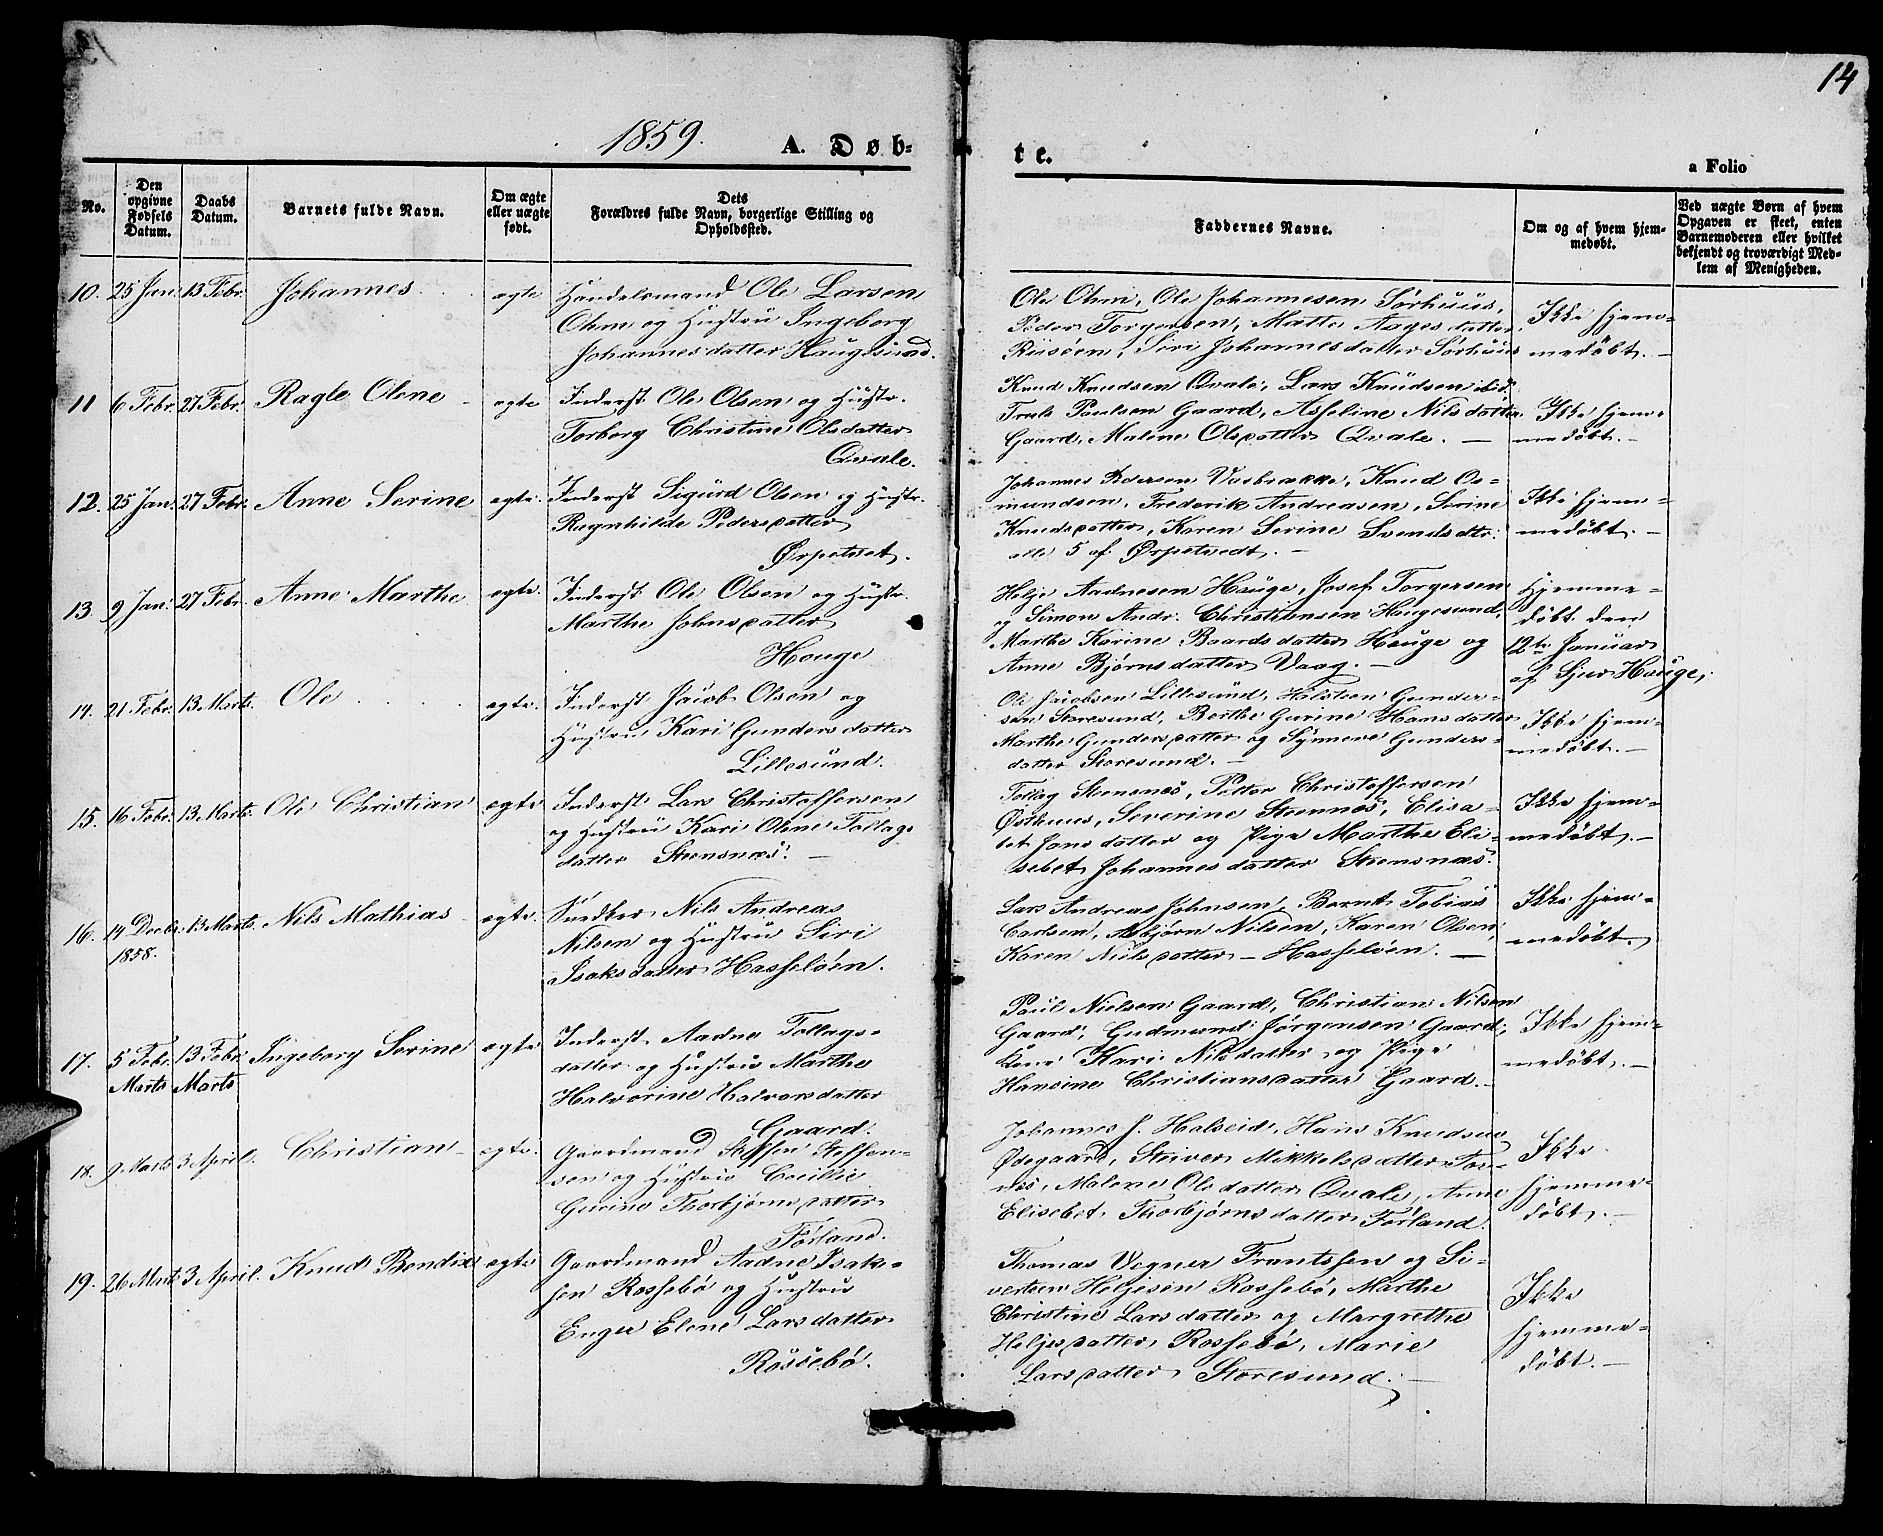 14
1859.
A. Døb-
te.
a Folio
No.
Den opgivne Fødsels Datum.
Daabs Datum.
Barnets fulde Navn.
Om ægte eller uægte født.
Dets Forældres fulde Navn, borgerlige Stilling og Opholdssted.
Faddernes Navne.
Om og af hvem hjem-
medøbt.
Ved uægte Børn af hvem
Opgaven er skeet, enten
Barnemoderen eller hvilket
bekjendt og troværdigt Med-
lem af Menigheden.
10. 25 Jan: 13 Febr. Johannes ægte Handelsmand Ole Larsen
Ohm og Hustru Ingeborg
Johannesdatter Haugesund.
Ole Ohm, Ole Johannesen Sørhuus,
Peder Torgersen, Matte Aagesdatter
Riisöen, Siri Johannesdatter Sørhuus
Ikke hjem-
medøbt.
11 6 Febr. 27 Febr. Ragle Olene ægte Inderst Ole Olsen og Hustr.
Torborg Christine Olsdatter
Qvale.
Knud Knudsen Qvale, Lars Knudsen ibid,
Truls Poulsen Gaard, Asseline Nilsdatter
Gaard, Malene Olsdatter Qvale.
Ikke hjem-
medøbt.
12. 25 Jan: 27 Febr. Anne Serine ægte. Inderst Sigurd Olsen og Hustr.
Ragnhilde Pedersdatter
Ørpetvet.
Johannes Pedersen Vasbrække, Knud Os-
mundsen, Frederik Andreasen, Serine
Knudsdatter, Karen Serine Svendsdtr.
alle 5 af Ørpetvedt.
Ikke hjem-
medøbt.
13 9 Jan: 27 Febr. Anne Marthe ægte. Inderst Ole Olsen og Hustr.
Marthe Johnsdatter
Hauge
Helje Aadnesen Hauge, Josef Torgersen
og Simon Andr. Christiansen Haugesund,
Marthe Karine Baardsdatter Hauge og
Anne Bjørnsdatter Vaag.
Hjemme-
døbt den
12te Januar
af Sjur Hauge,
14. 21 Febr. 13 Marts. Ole ægte. Inderst Jacob Olsen og
Hustru Kari Gundersdatter
Lillesund.
Ole Jacobsen Lillesund, Halsten Gunder-
sen Storesund, Berthe Gurine Hansdatter
Marthe Gundersdatter og Synneve Gunders-
datter Storesund.
Ikke hjem-
medøbt.
15. 16 Febr. 13 Marts. Ole Christian ægte Inderst Lars Christoffersen
og Hustru Kari Olene Tollags
datter Steensnæs.
Tollag Steensnæs, Petter Christoffersen
Østhuus, Severine Steensnæs, Elisa-
bet Jansdatter og Pige Marthe Eli-
sebet Johannesdatter Steensnæs.
Ikke hjem-
medøbt.
16. 14 Decbr. 13 Marts. Nils Mathias ægte. Snedker Nils Andreas
1858. Nilsen og Hustru Siri
Isaksdatter Hasseløen.
Lars Andreas Johnsen, Bernt Tobias
Carlsen, Asbjørn Nilsen, Karen Olsen,
Karen Nilsdatter – Hasseløen.
Ikke hjem-
medøbt.
17. 5 Febr. 13 Febr. Ingeborg Serine ægte Inderst Aadne Tollags-
Marts Marts datter og Hustru Marthe
Halvorine Halvorsdatter
Gaard.
Paul Nielsen Gaard, Christian Nilsen
Gaard, Gudmund Jørgensen Gaard,
Kone Kari Nilsdatter og Pige
Hansine Christiansdatter Gaard.
Ikke hjem-
medøbt.
18. 9 Marts 3 April. Christian ægte. Gaardmand Steffen Steffen-
sen og Hustru Cecilie
Gurine Thorbjørnsdatter
Førland.
Johannes J. Halseid, Hans Knudsen
Ødegaard, Mikkelsdatter Tor-
næs, Malene Olsdatter Qvale, Anne
Elisebet Thorbjørnsdatter Førland.
Ikke
hjemme-
døbt.
19. 26 Marts 3 April. Knud Bendix ægte Gaardmand Aadne Isak-
sen Rossebø og Hustru
Enger Elene Larsdatter
Rossebø.
Thomas Vegner Frantssen og Si-
vertsen Heljesen Rossebø, Marthe
Christine Larsdatter og Margrethe
Heljesdatter Rossebø, Marie
Larsdatter Storesund.
Ikke
hjemme-
døbt.